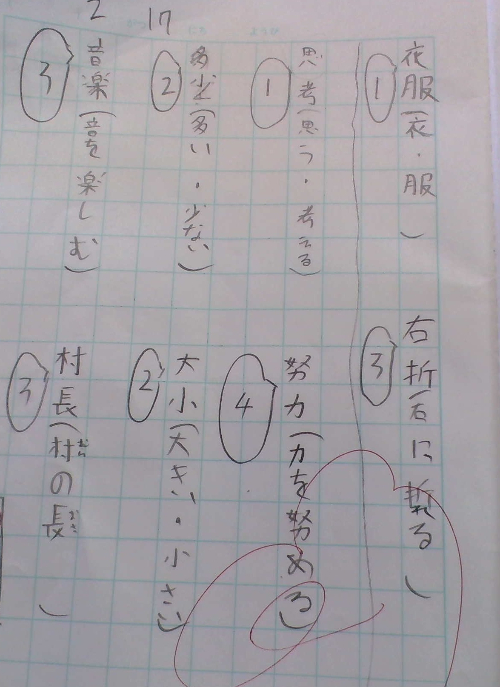 2 17
衣服(衣・服)
1
右折(右に折る)
3
思考(思う・考える)
1
努力(力を努める)
4
多少(多い・少ない)
2
大小(大きい・小さい)
2
音楽(音を楽しむ)
3
村長(村の長)
3